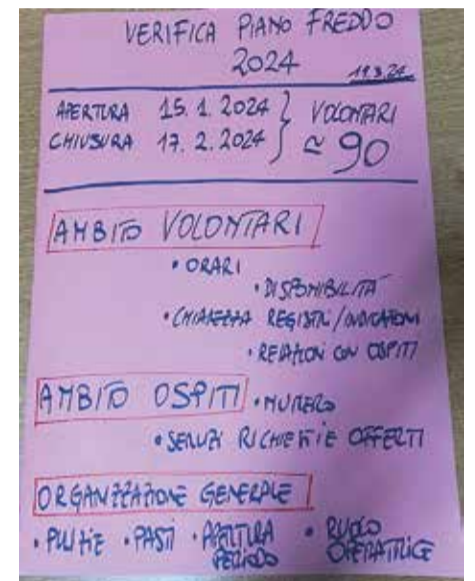 VERIFICA PIANO FREDDO
2024 19.3.24
APERTURA 15.1.2024 } VOLONTARI
CHIUSURA 17.2.2024 } ≃ 90
AMBITO VOLONTARI
• ORARI
• DISPONIBILITÀ
• CHIAREZZA REGISTRI/INDICAZIONI
• RELAZIONI CON OSPITI
AMBITO OSPITI • NUMERO
• SERVIZI RICHIESTI E OFFERTI
ORGANIZZAZIONE GENERALE
• PULIZIE • PASTI • APERTURA • RUOLO
PERIODO OPERATRICE